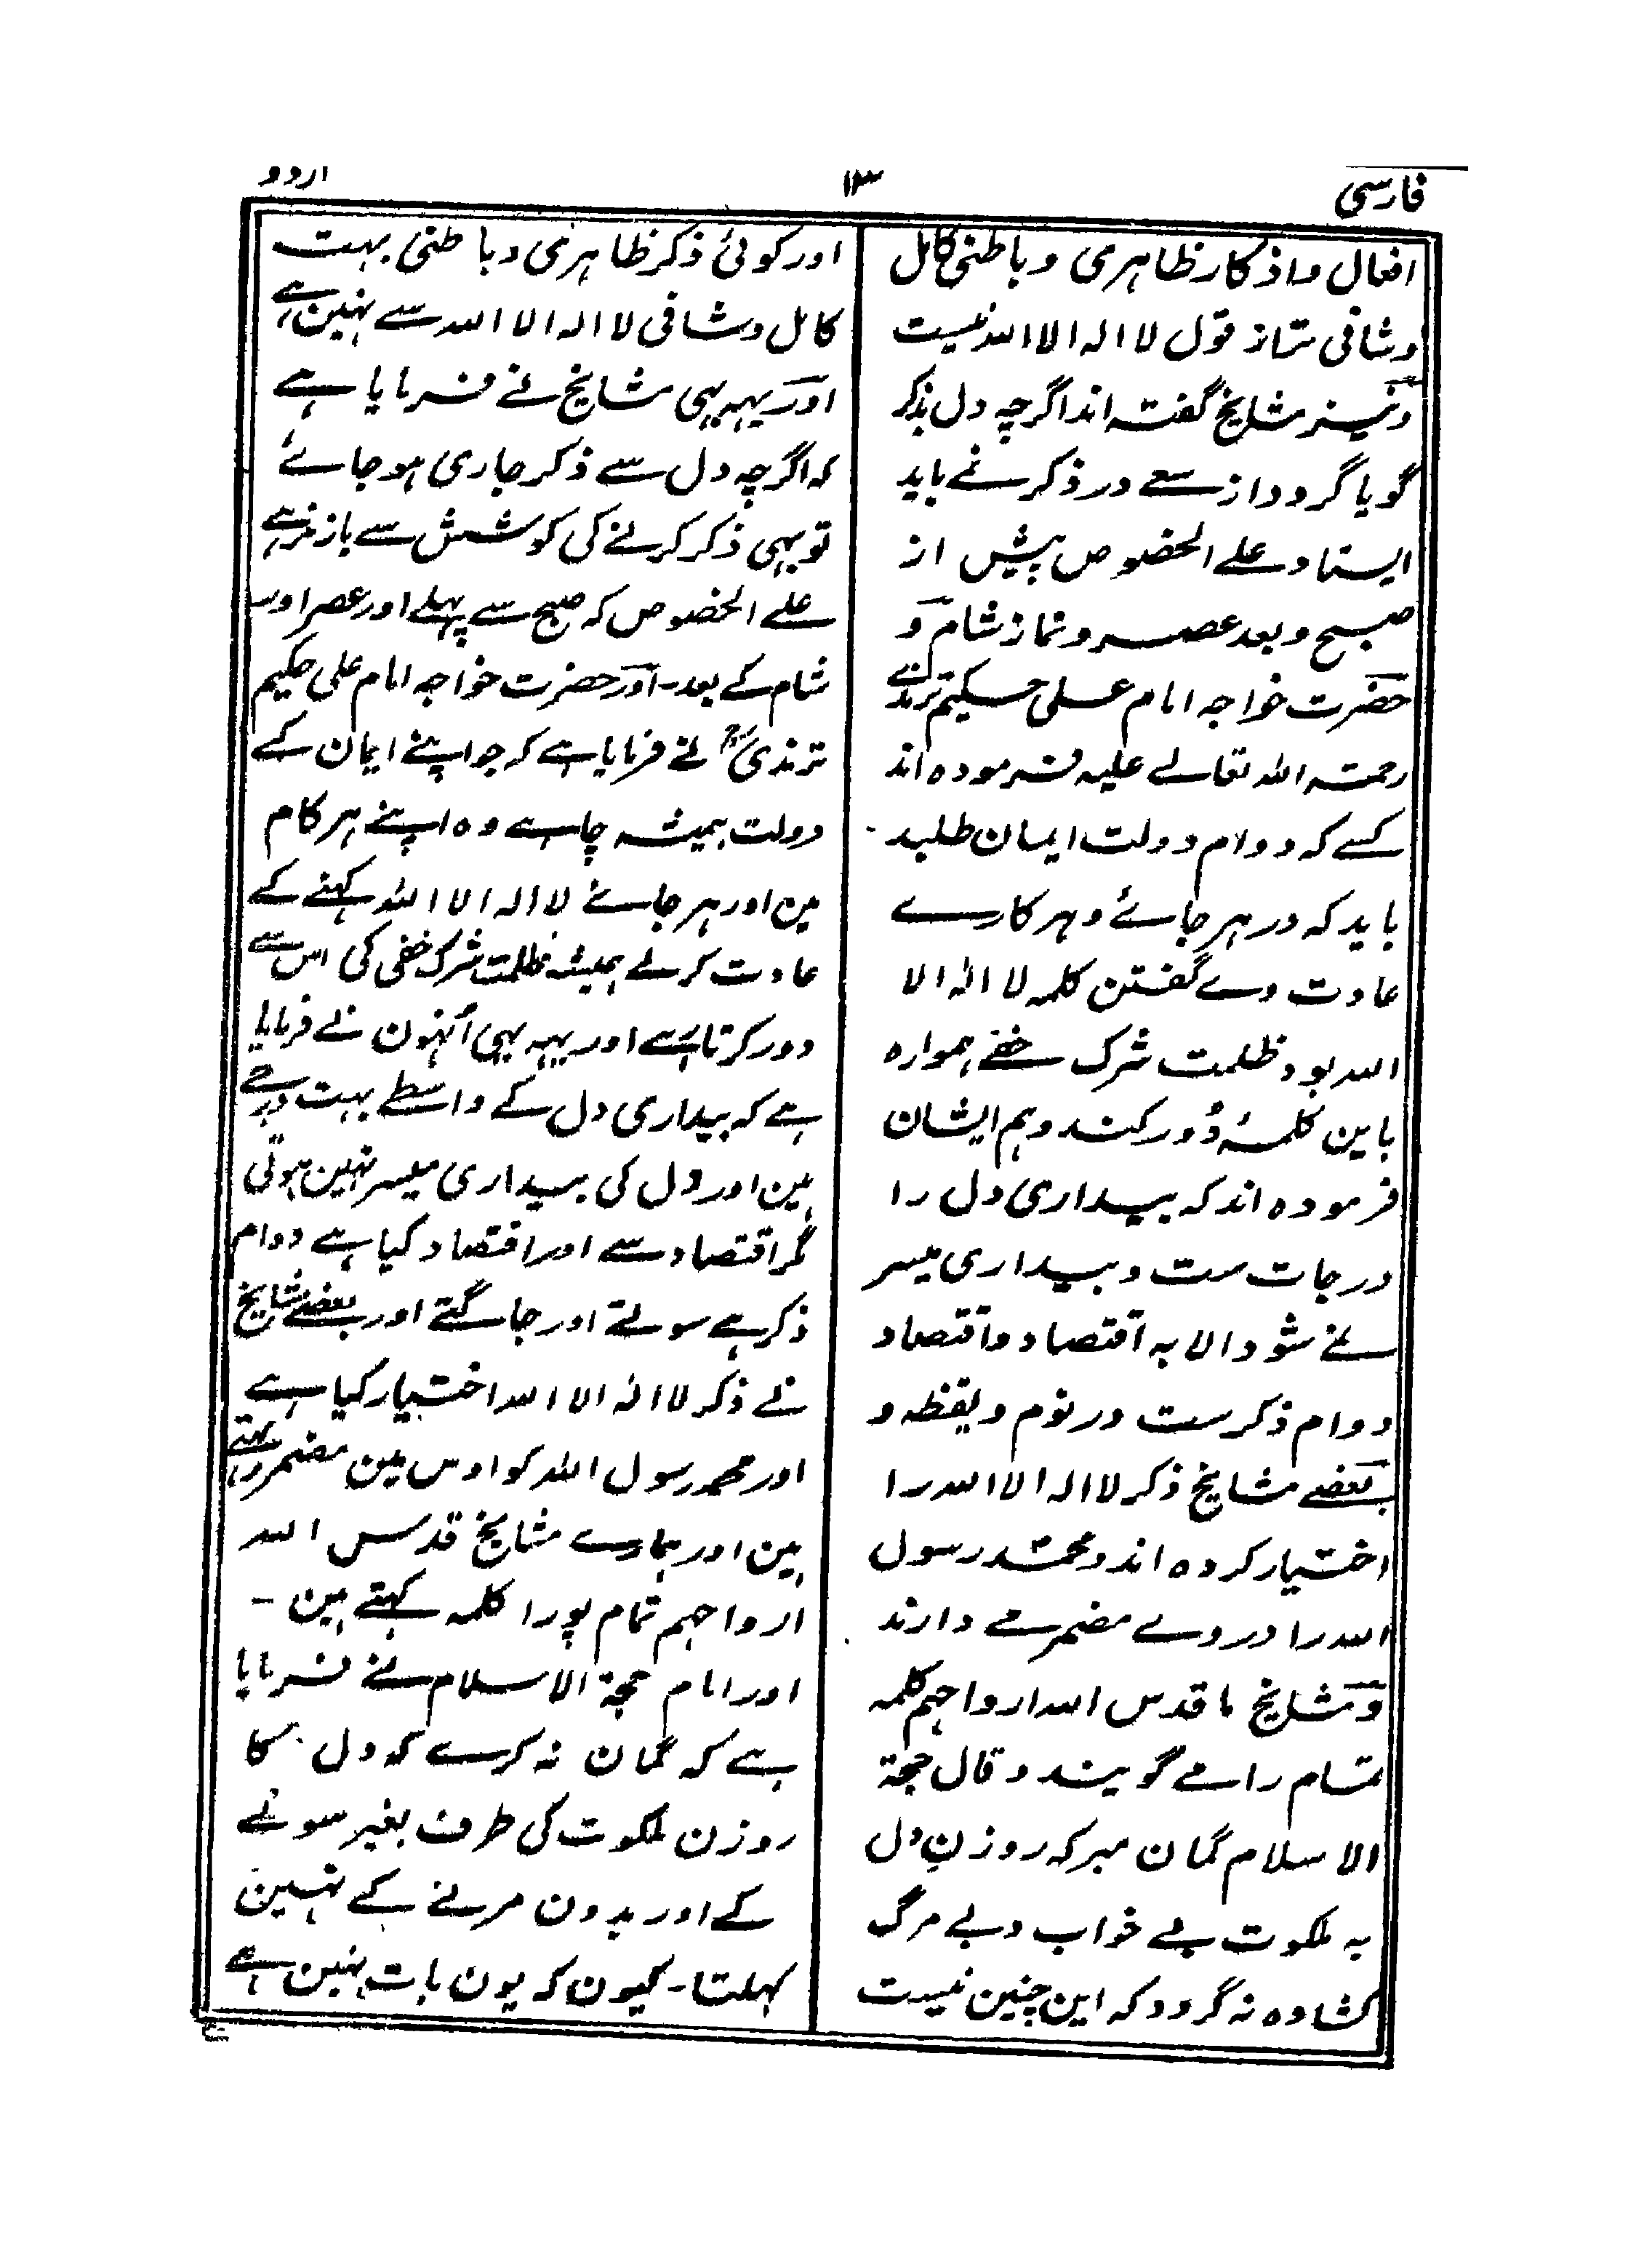 فارسی
۱۳
اردو
افعال و اذکار ظاہری و باطنی کامل
و شافی تر از قول لا الہ الا اللہ نیست
و نیز مشایخ گفتہ اند اگرچہ دل بذکر
گویا گردد از سعے در ذکر نمے باید
ایستاد علے الخصوص پیش از
صبح و بعد عصر و نماز شام و
حضرت خواجہ امام علی حکیم ترمذے
رحمتہ اللہ تعالے علیہ فرمودہ اند
کسے کہ دوام دولت ایمان طلبد
باید کہ در ہر جائے و ہر کارے
عادت وے گفتن کلمہ لا الہ الا
اللہ بود ظلمت شرک خفے ہموارہ
باین کلمۂ دُور کند و ہم ایشان
فرمودہ اند کہ بیداری دل را
درجات ست و بیداری میسر
نے شود الا بہ اقتصاد و اقتصاد
دوام ذکر ست در نوم و یقظہ و
بعضے مشایخ ذکر لا الہ الا اللہ را
اختیار کردہ اند و محمد رسول
اللہ را در وے مضمر مے دارند
و مشایخ ما قدس اللہ ارواحہم کلمہ
تمام را مے گویند و قال حجۃ
الاسلام گمان مبر کہ روزنِ دل
بہ ملکوت بے خواب و بے مرگ
کشادہ نہ گردد کہ این چنین نیست
اور کوئی ذکر ظاہری و باطنی بہت
کامل و شافی لا الہ الا اللہ سے نہین ہے
اور یہہ بہی مشایخ نے فرمایا ہے
کہ اگرچہ دل سے ذکر جاری ہو جائے
تو بہی ذکر کرنے کی کوشش سے باز نرہے
علے الخصوص کہ صبح سے پہلے اور عصر اور
شام کے بعد۔ اور حضرت خواجہ امام علی حکیم
ترمذیؒ نے فرمایا ہے کہ جو اپنے ایمان کے
دولت ہمیشہ چاہے وہ اپنے ہر کام
مین اور ہر جائے لا الہ الا اللہ کہنے کے
عادت کرلے ہمیشہ ظلمت شرک خفی کی اس سے
دور کرتا ہے اور یہہ بہی اُنہون نے فرمایا
ہے کہ بیداری دل کے واسطے بہت درجے
ہین اور دل کی بیداری میسر نہین ہوتی
مگر اقتصاد سے اور اقتصاد کیا ہے دوام
ذکر ہے سوتے اور جاگتے اور بعضے مشایخ
نے ذکر لا الہ الا اللہ اختیار کیا ہے
اور محمد رسول اللہ کو اوس مین مضمر رکہتے
ہین اور ہمارے مشایخ قدس اللہ
ارواحہم تمام پورا کلمہ کہتے ہین –
اور امام حجۃ الاسلام نے فرمایا
ہے کہ گمان نہ کرے کہ دل کا
روزن ملکوت کی طرف بغیر سونے
کے اور بدون مرنے کے نہین
کہلتا۔ کیون کہ یون بات نہین ہے